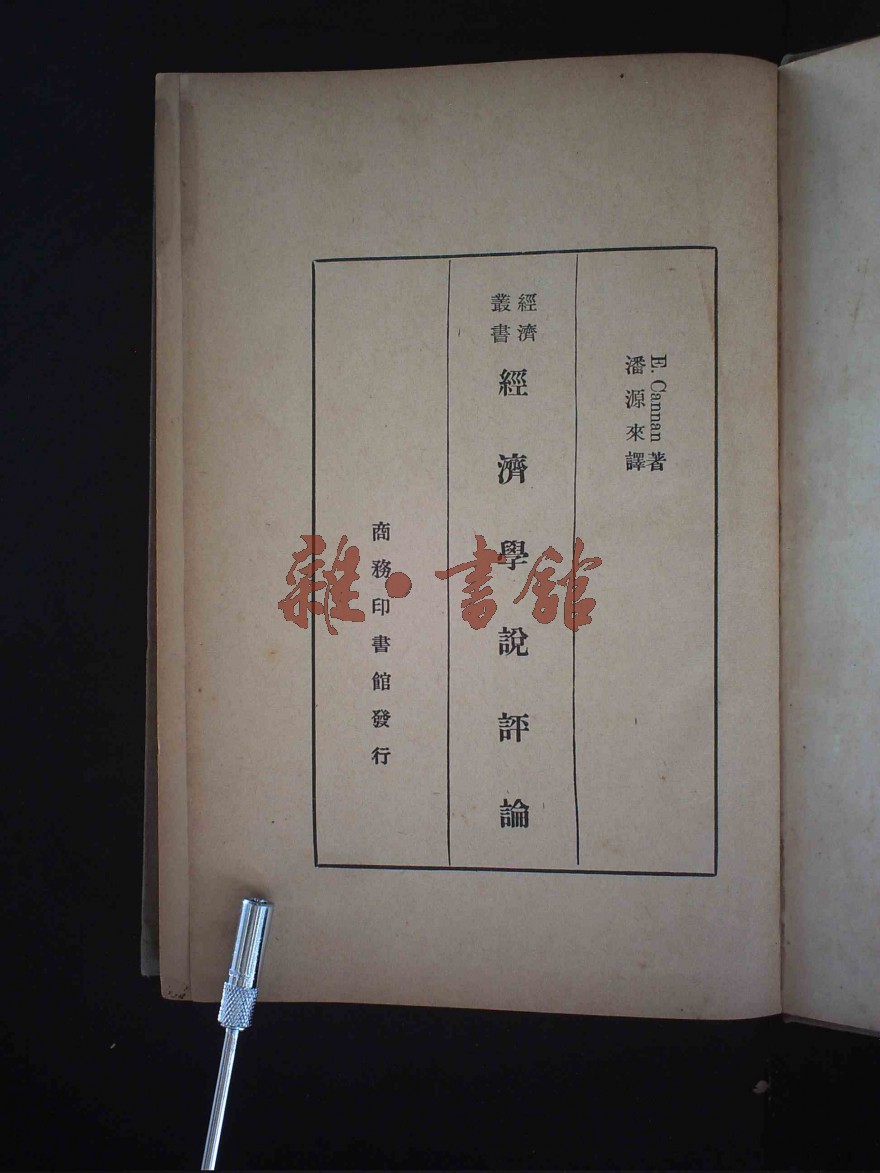 E. Cannan 著
潘源來譯
經濟
叢書
經濟學說評論
商務印書館發行
雜·書館